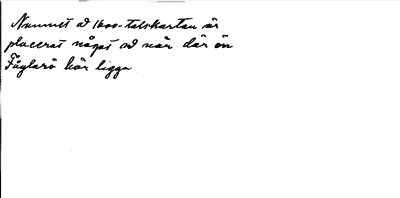 Namnet å 1600-talskartan är
placerat något så när där ön
Fåglarö bör ligga